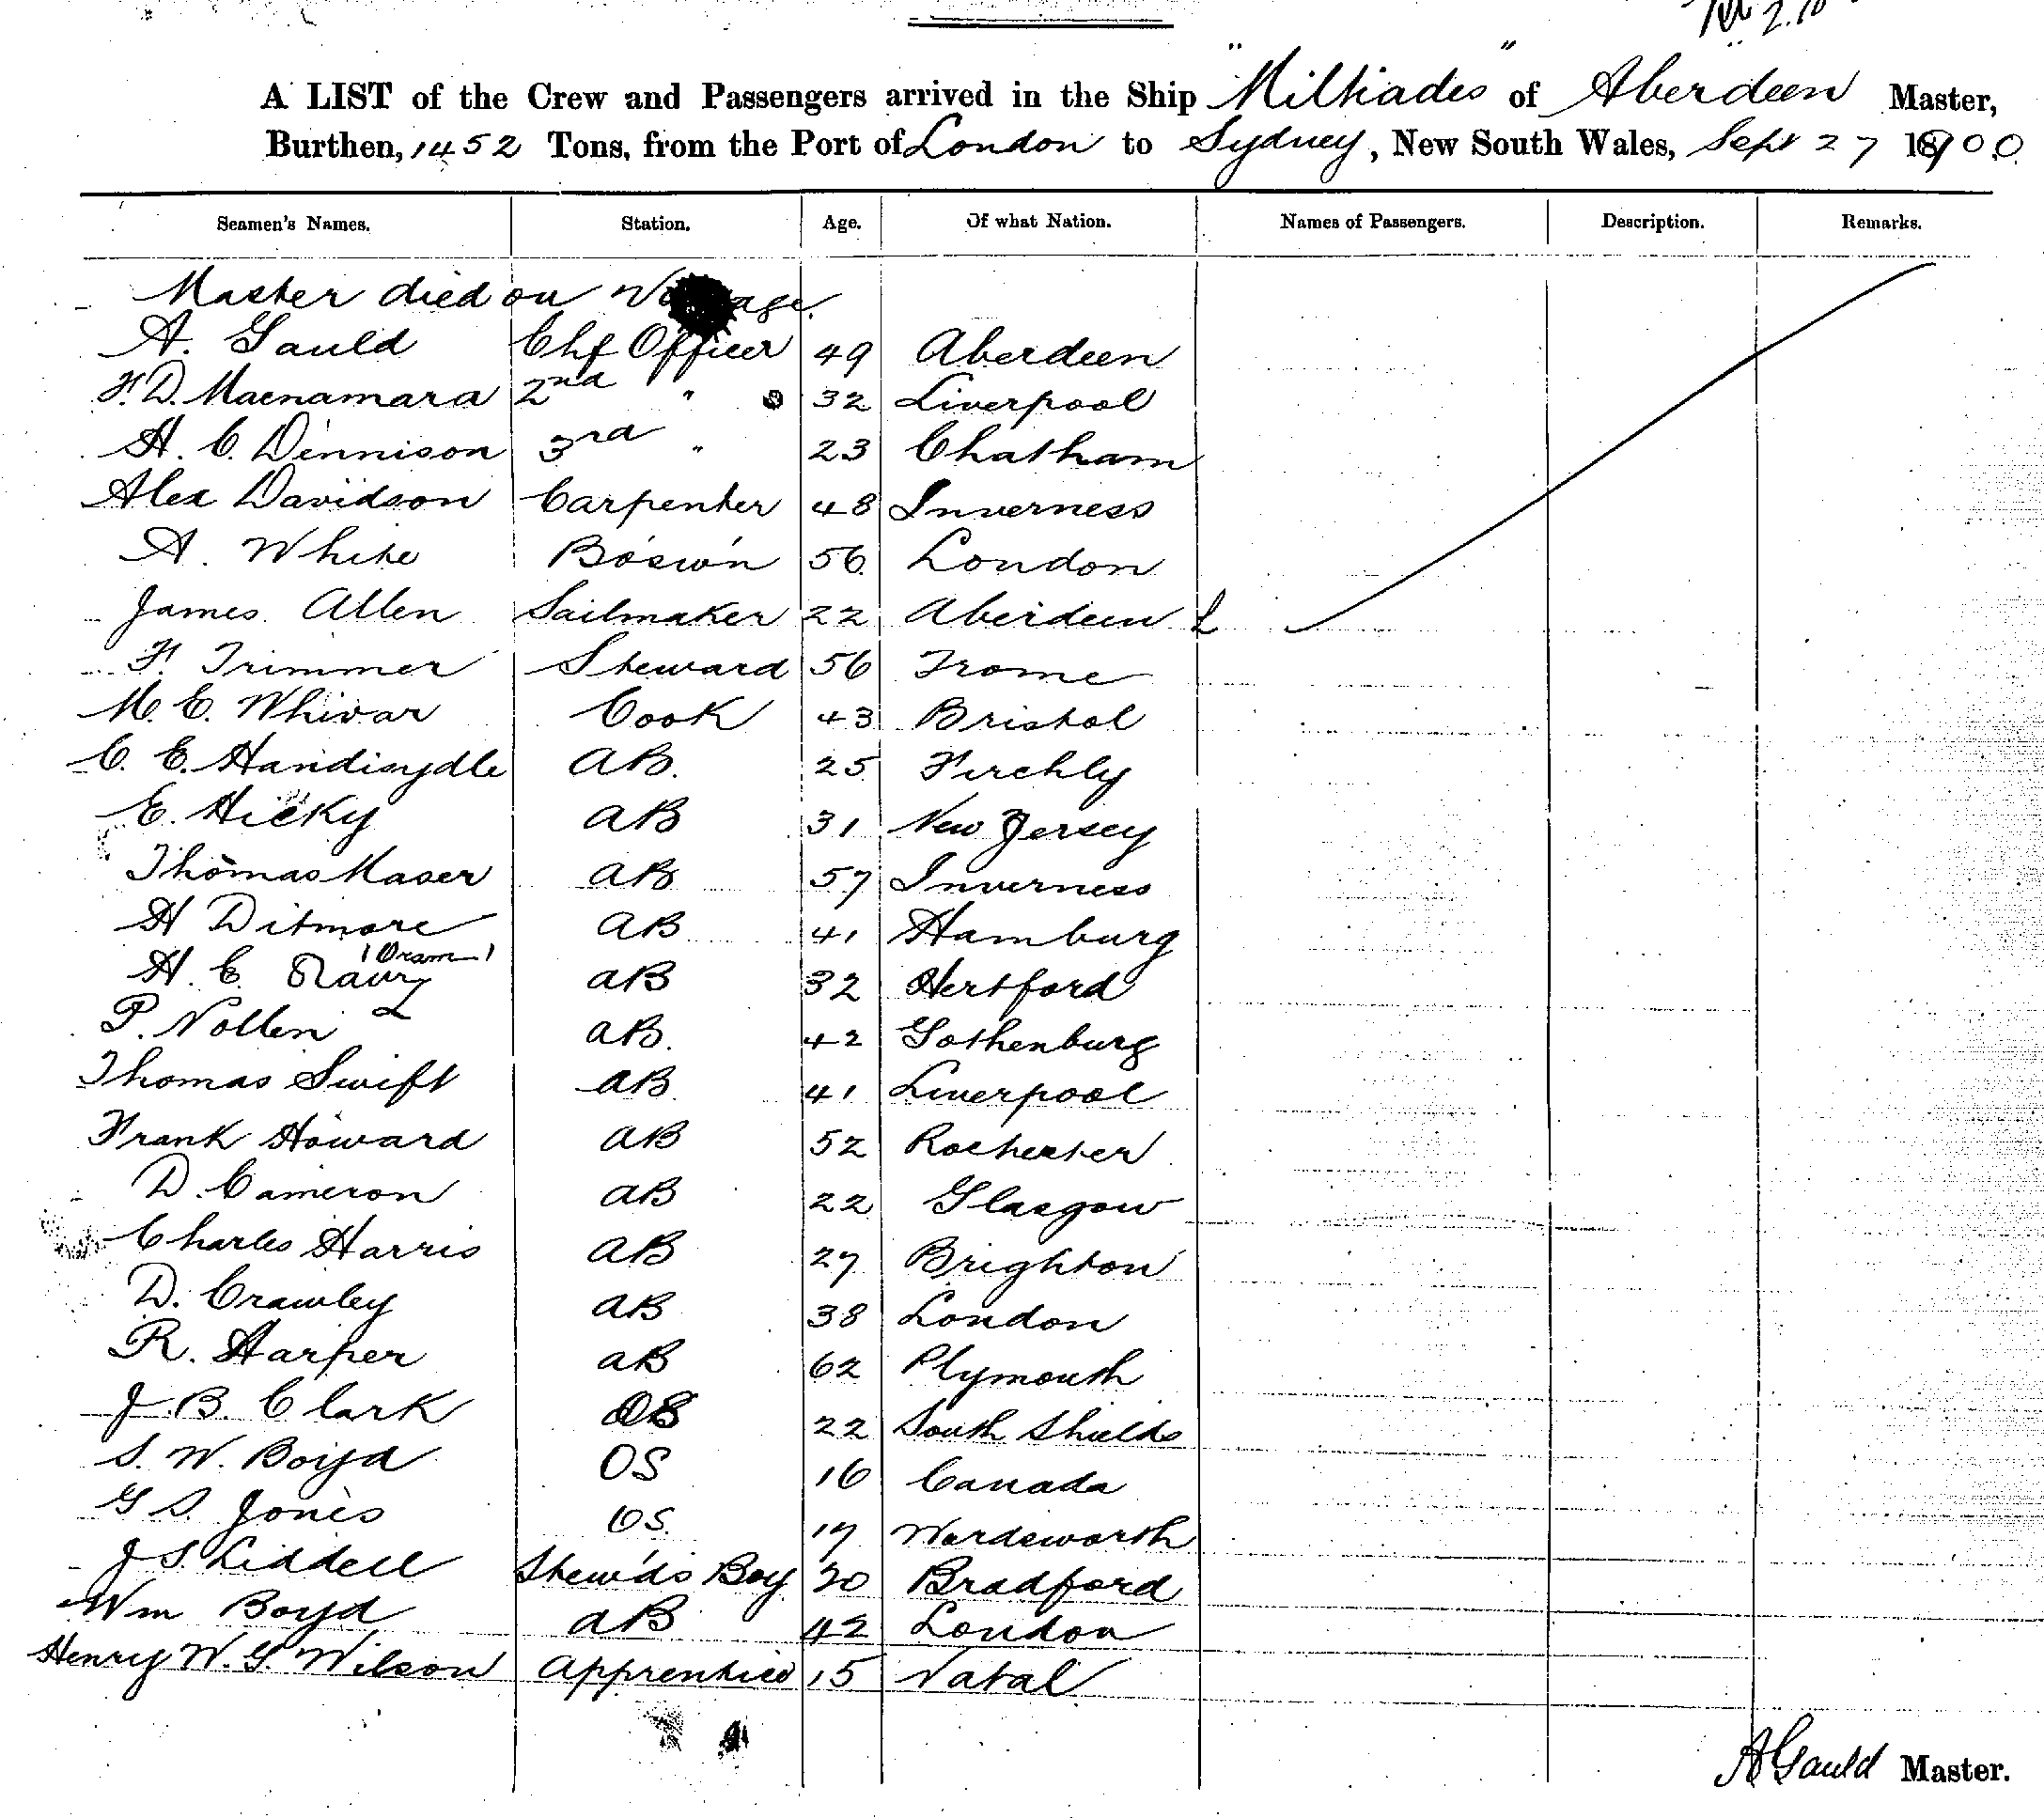 A LIST of the Crew and Passengers arrived in the Ship "Miltiades" of Aberdeen Master,
Burthen, 1452 Tons, from the Port of London to Sydney, New South Wales, Sept 27 1900
Seamen's Names. Station. Age. Of what Nation. Names of Passengers. Description. Remarks.
Master died on Voyage.
A. Gauld Chf Officer 49 Aberdeen
F. D. Macnamara 2nd " 32 Liverpool
H. C. Dennison 3rd " 23 Chatham
Alex Davidson Carpenter 48 Inverness
A. White Bo'sw'n 56 London
James Allen Sailmaker 22 Aberdeen
F. Trimmer Steward 56 Frome
M. E. Whivar Cook 43 Bristol
C. E. Handisydle AB. 25 Firchly
E. Hicky AB 31 New Jersey
Thomas Maser AB 57 Inverness
H Ditmore AB 41 Hamburg
(Oram)
H. E. AB 32 Hertford
P. Nollen AB. 42 Gothenburg
Thomas Swift AB 41 Liverpool
Frank Howard AB 52 Rochester
D. Cameron AB 22 Glasgow
Charles Harris AB 27 Brighton
D. Crawley AB 38 London
R. Harper AB 62 Plymouth
J. B. Clark OS 22 South Shields
S. W. Boyd OS 16 Canada
G S. Jones OS. 17 Wandsworth
J S. Liddell Stew'ds Boy 20 Bradford
Wm Boyd AB 42 London
Henry W. G. Wilson Apprentice 15 Natal
A Gauld Master.